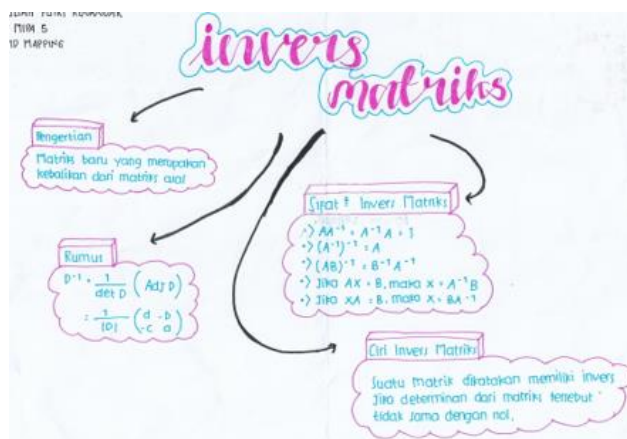 MIPA 5
MAPPING
invers
matriks
Pengertian
Matriks baru yang merupakan
kebalikan dari matriks awal
Rumus
D⁻¹ = 1/det D (Adj D)
= 1/|D| (d -b
-c a)
Sifat² Invers Matriks
•) AA⁻¹ = A⁻¹A = I
•) (A⁻¹)⁻¹ = A
•) (AB)⁻¹ = B⁻¹A⁻¹
•) Jika AX = B, maka X = A⁻¹B
•) Jika XA = B, maka X = BA⁻¹
Ciri Invers Matriks
Suatu matrik dikatakan memiliki invers
Jika determinan dari matriks tersebut
tidak sama dengan nol.